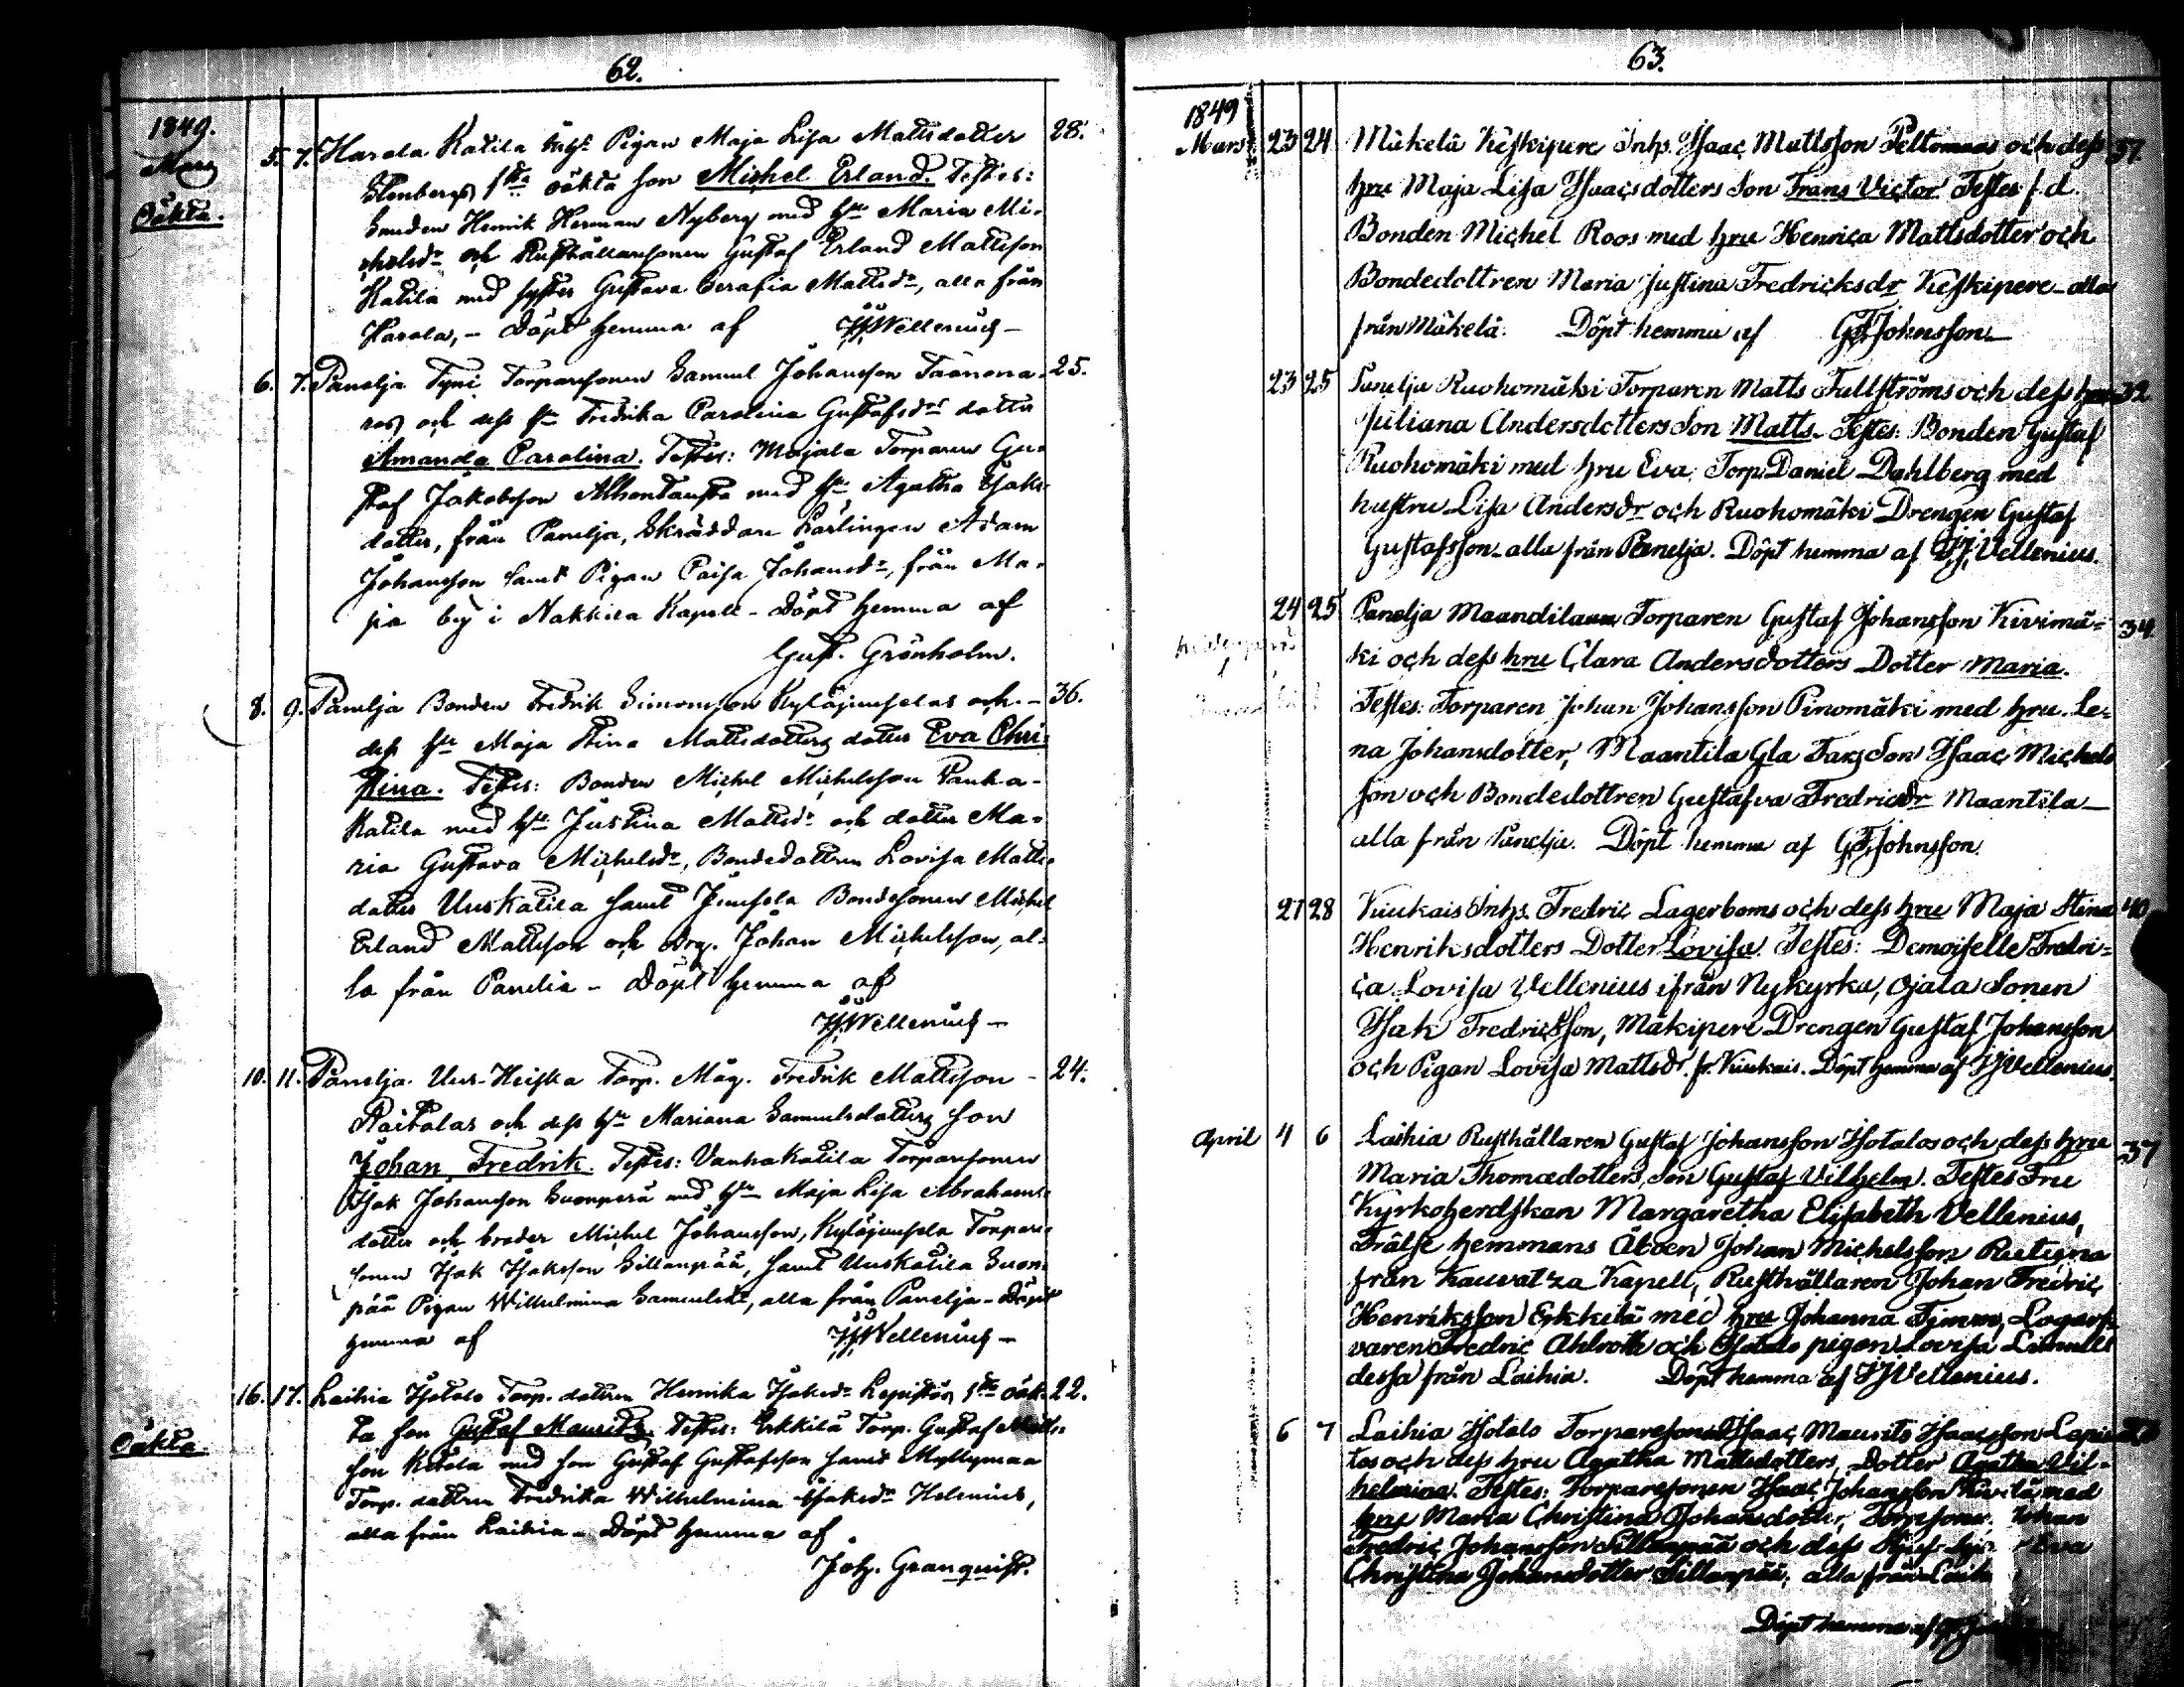 62.
1849.
Mars
Oäkta.
5. 7. Harola Katila Pigan Maja Lisa Mattsdotter 28.
Stenbergs 1sta oäkta son Michel Erland. Testes:
Bonden Henrik Herman Nyberg med hu Maria Mi-
chelsdr och Rusthållaresonen Gustaf Erland Mattsson
Katila med syster Gustava Serafia Mattsdr, alla från
Harola, – Döpt hemma af IJWellenius –
6. 7. Panelja Tyni Torparesonen Samuel Johansson
och dess hu Fredrika Carolina Gustafsdrs dotter 25.
Amanda Carolina. Testes: Majala Torparen Gu-
staf Jakobsson Alhontausta med hu Agatha Isaks-
dotter, från Panelja, Skräddare Lärlingen Adam
Johansson samt Pigan Caisa Johansdr, från
by i Nakkila Kapell – Döpt hemma af
Gust. Grönholm.
8. 9. Panelja Bonden Fredrik Simonsson Kyläjunselas och – 36.
dess hu Maja Stina Mattsdotters dotter Eva Chri-
stina. Testes: Bonden Michel Michelsson Vanha-
Katila med hu Justina Mattsdr och dotter Ma-
ria Gustava Michelsdr, Bondedottren Lovisa Matts-
dotter Uuskatila samt Junsela Bondesonen Michel
Erland Mattsson och Drg. Johan Michelsson, al-
la från Panelia – Döpt hemma af
IJWellenius –
10. 11. Panelja Uus-Heiska Torp. Måg. Fredrik Mattsson – 24.
Raitalas och dess hu Mariana Samuelsdotters son
Johan Fredrik. Testes: Vanhakatila Torparesonen
Isak Johansson Suonperä med hu Maja Lisa Abrahams-
dotter och broder Michel Johansson, Kyläjunsela Torpare-
sonen Isak Isaksson Sillanpää, samt Uuskatila Suon-
pää Pigan Wilhelmina Samuelsdr, alla från Panelja – Döpt
hemma af IJWellenius –
16. 17. Laihia Isotalo Torp. dottren Henrika Isaksdr Lepistös 1sta oäk- 22.
Oäkta
ta son Gustaf Mauritz. Testes: Erkkilä Torp. Gustaf Matts-
son Ketola med son Gustaf Gustafsson samt Myllymaa
Torp. dottren Fredrika Wilhelmina Isaksdr Helenius,
alla från Laihia – Döpt hemma af
Joh. Granquist.
63.
1849
Mars 23 24 Mäkelä Keskipere Inhs. Isaac Mattsson Peltomaas och dess 37.
hru Maja Lisa Isaacsdotters Son Frans Victor Testes f.d.
Bonden Michel Roos med hru Henrica Mattsdotter och
Bondedottren Maria Justina Fredricksdr Keskipere – alla
från Mäkelä. Döpt hemma af GFJohnsson
23 25 Panelja Ruohomäki Torparen Matts Fullströms och dess hru 32
Juliana Andersdotters Son Matts. Testes: Bonden Gustaf
Ruohomäki med hru Eva, Torp. Daniel Dahlberg med
hustru Lisa Andersdr och Ruohomäki Drengen Gustaf
Gustafsson – alla från Panelja. Döpt hemma af IJVellenius.
24 25 Panelja Maandila Torparen Gustaf Johansson Kivimä- 34
ki och dess hru Clara Andersdotters Dotter Maria.
Testes: Torparen Johan Johansson Pinomäki med hru Le-
na Johansdotter, Maantila Gla Torp. Son Isaac Michels
son och Bondedottren Gustafva Fredricsdr Maantila –
alla från Panelja. Döpt hemma af GFJohnsson.
27 28 Kiukais Inhs. Fredric Lagerboms och dess hru Maja Stina 40
Henriksdotters Dotter Lovisa. Testes: Demoiselle Fredri-
ca Lovisa Vellenius ifrån Nykyrka, Ojala Sonen
Isak Fredricsson, Mäkipere Drengen Gustaf Johansson
och Pigan Lovisa Mattsdr. fr. Kiukais. Döpt hemma af IJVellenius.
April 4 6 Laihia Rusthållaren Gustaf Johansson Isotalos och dess hru 37
Maria Thomædotters Son Gustaf Vilhelm. Testes Fru
Kyrkoherdskan Margaretha Elisabeth Vellenius,
Frälse hemmans Åboen Johan Michelsson
från Kauvatza Kapell, Rusthållaren Johan Fredric
Henriksson Erkkilä med hru Johanna
Fredric Ahlroth och Isotalo pigan Lovisa
dessa från Laihia. Döpt hemma af IJVellenius.
6 7 Laihia Isotalo Torparesonen Isaac Maurits Isaacsson Lepis-
tös och dess hru Agatha Mattsdotters Dotter Agatha Vil-
helmina. Testes: Torparesonen Isaac Johansson med
hru Maria Christina Johansdotter, Torp. sonen Johan
Fredric Johansson Sillanpää och dess Eva
Christina Johansdotter Sillanpää, alla från
Döpt hemma af